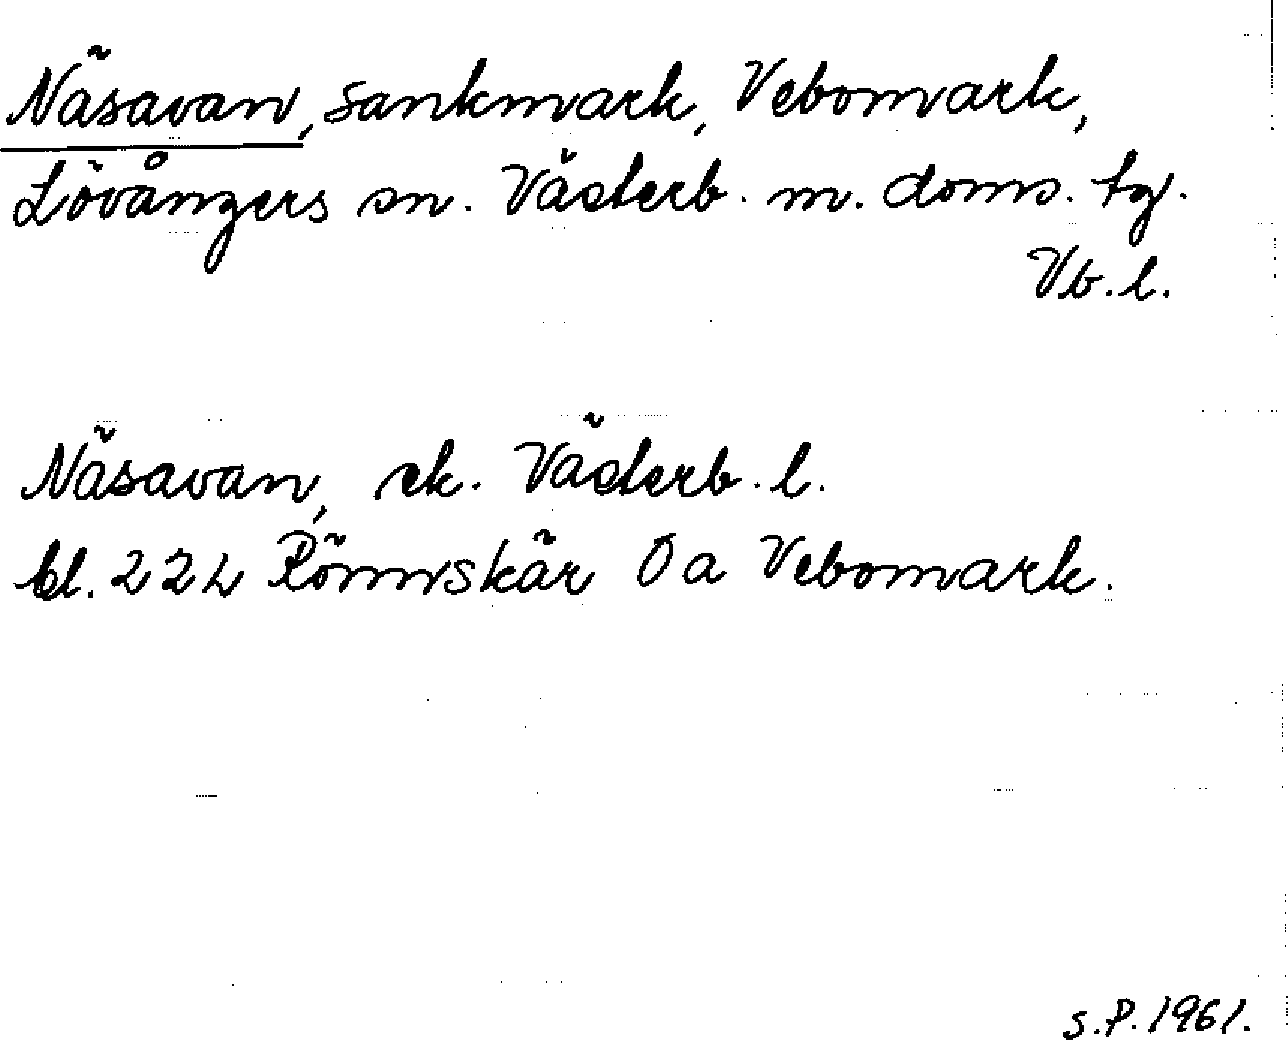 Näsavan, sankmark, Vebomark,
Lövångers sn. Västerb. m. doms. tg.
Vb. l.
Näsavan, ek. Västerb. l.
bl. 222 Rönnskär Ö a Vebomark.
S.P. 1961.